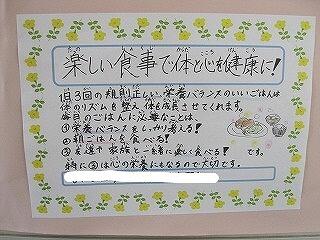 楽しい食事で体と心を健康に!
1日3回の規則正しい栄養バランスのいいごはんは
体のリズムを整え体を成長させてくれます。
毎日のごはんに必要なことは、
①栄養バランスをしっかり考える!
②朝ごはんを食べる!
③友達や家族と一緒に楽しく食べる! です。
特に③は心の栄養にもなるので大切です。